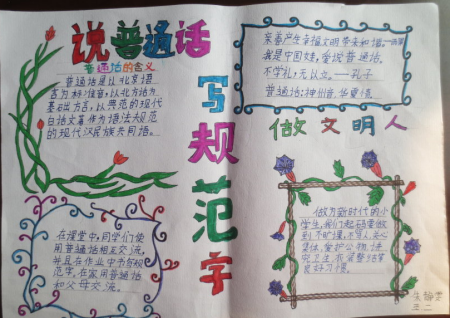 说普通话
普通话的含义
普通话是以北京语
言为标准音,以北方话为
基础方言,以典范的现代
白话文著作为语法规范
的现代汉民族共同语。
写规范字
在课堂中,同学们使
用普通话相互交流,
并且在作业中书写规
范字,在家用普通话
和父母交流。
我是中国娃,爱说普通话,
不学礼,无以立。——孔子
普通话:神州音,华夏情
做文明人
做为新时代的小
学生,我们起码要做
到
集体,爱护公物,讲
究卫生
良好习惯。